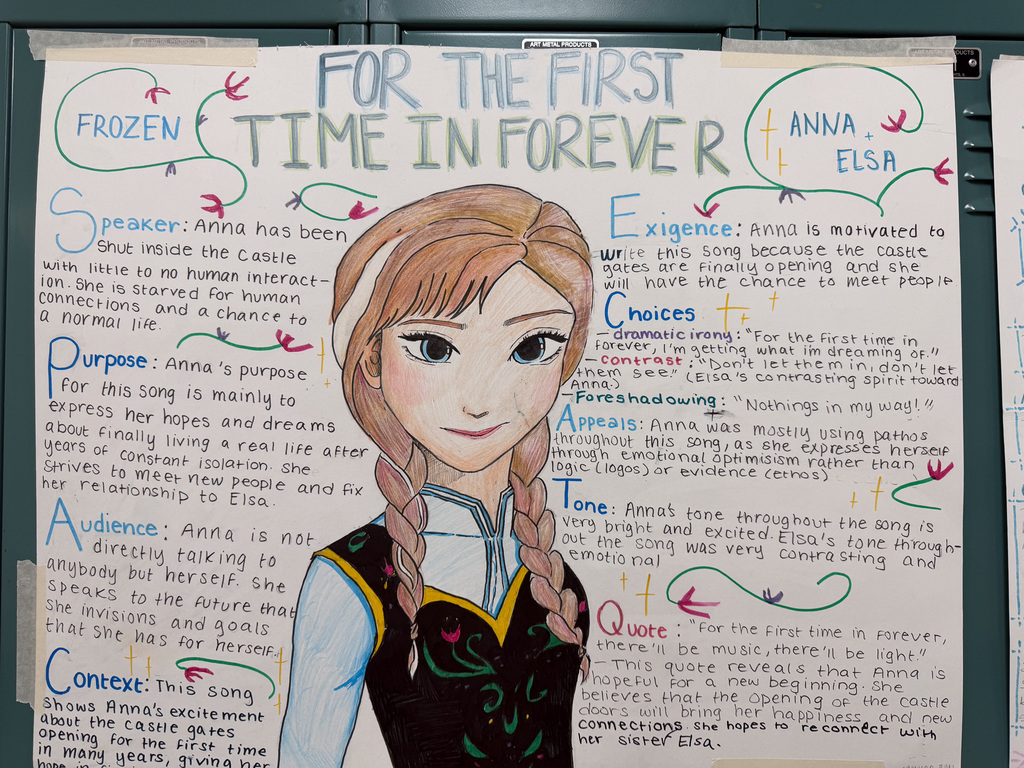 ART METAL PRODUCTS
FOR THE FIRST
TIME IN FOREVER
FROZEN
ANNA +
ELSA
Speaker: Anna has been
shut inside the castle
with little to no human interact-
ion. She is starved for human
connections and a chance to
a normal life.
Purpose: Anna's purpose
for this song is mainly to
express her hopes and dreams
about finally living a real life after
years of constant isolation. She
strives to meet new people and fix
her relationship to Elsa.
Audience: Anna is not
directly talking to
anybody but herself. She
speaks to the future that
she invisions and goals
that she has for herself.
Context: This song
shows Anna's excitement
about the castle gates
opening for the first time
in many years, giving her
Exigence: Anna is motivated to
write this song because the castle
gates are finally opening and she
will have the chance to meet people
Choices
- dramatic irony: "For the first time in
forever, I'm getting what im dreaming of."
- contrast: "Don't let them in, don't let
them see." (Elsa's contrasting spirit toward
Anna.)
- Foreshadowing: "Nothings in my way!"
Appeals: Anna was mostly using pathos
throughout this song, as she expresses herself
through emotional optimisism rather than
logic (logos) or evidence (ethos)
Tone: Anna's tone throughout the song is
very bright and excited. Elsa's tone through-
out the song was very contrasting and
emotional
Quote: "For the first time in forever,
there'll be music, there'll be light."
- This quote reveals that Anna is
hopeful for a new beginning. She
believes that the opening of the castle
doors will bring her happiness and new
connections. she hopes to reconnect with
her sister Elsa.